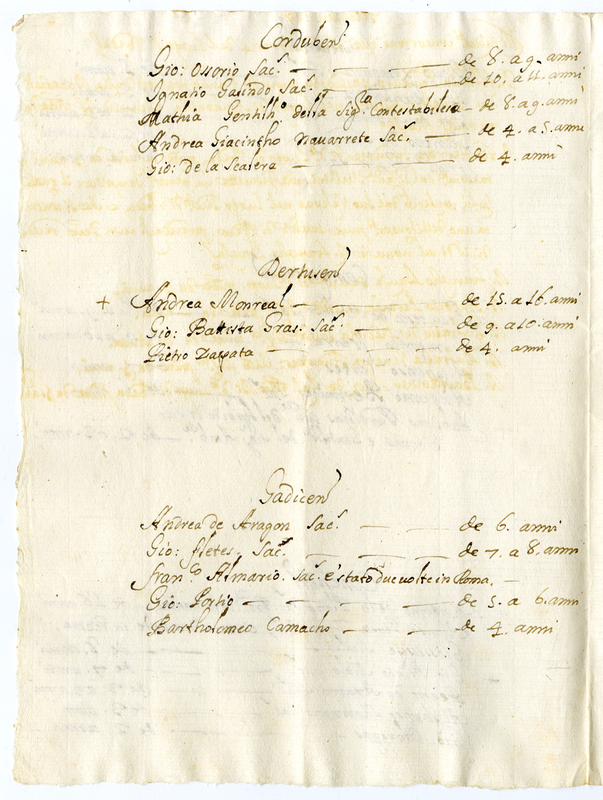 Cordubens
Gio: Ossorio Sacᵉ. — — — de 8. a 9. anni
Ignatio Galindo Sacᵉ. — — de 10. a 11. anni
Mathia Gentilhᵒ. della Sigʳᵃ Contestabilesa – de 8. a 9. anni
Andrea Giacintho Navarrete Sacᵉ. — de 4. a 5. anni
Gio: de la Scalera — — — de 4. anni
Dertusen
+ Andrea Monreal — — — de 15. a 16. anni
Gio: Battista Gras. Sacᵉ. — — de 9. a 10. anni
Pietro Zapata — — — de 4. anni
Gadicen
Andrea de Aragon Sacᵉ. — — de 6. anni
Gio: fletes. Sacᵉ. — — — de 7. a 8. anni
franᶜᵒ Almario. Sacᵉ. è stato due volte in Roma. —
Gio: — — — — de 5. a 6. anni
Bartholomeo Camacho — — — de 4. anni